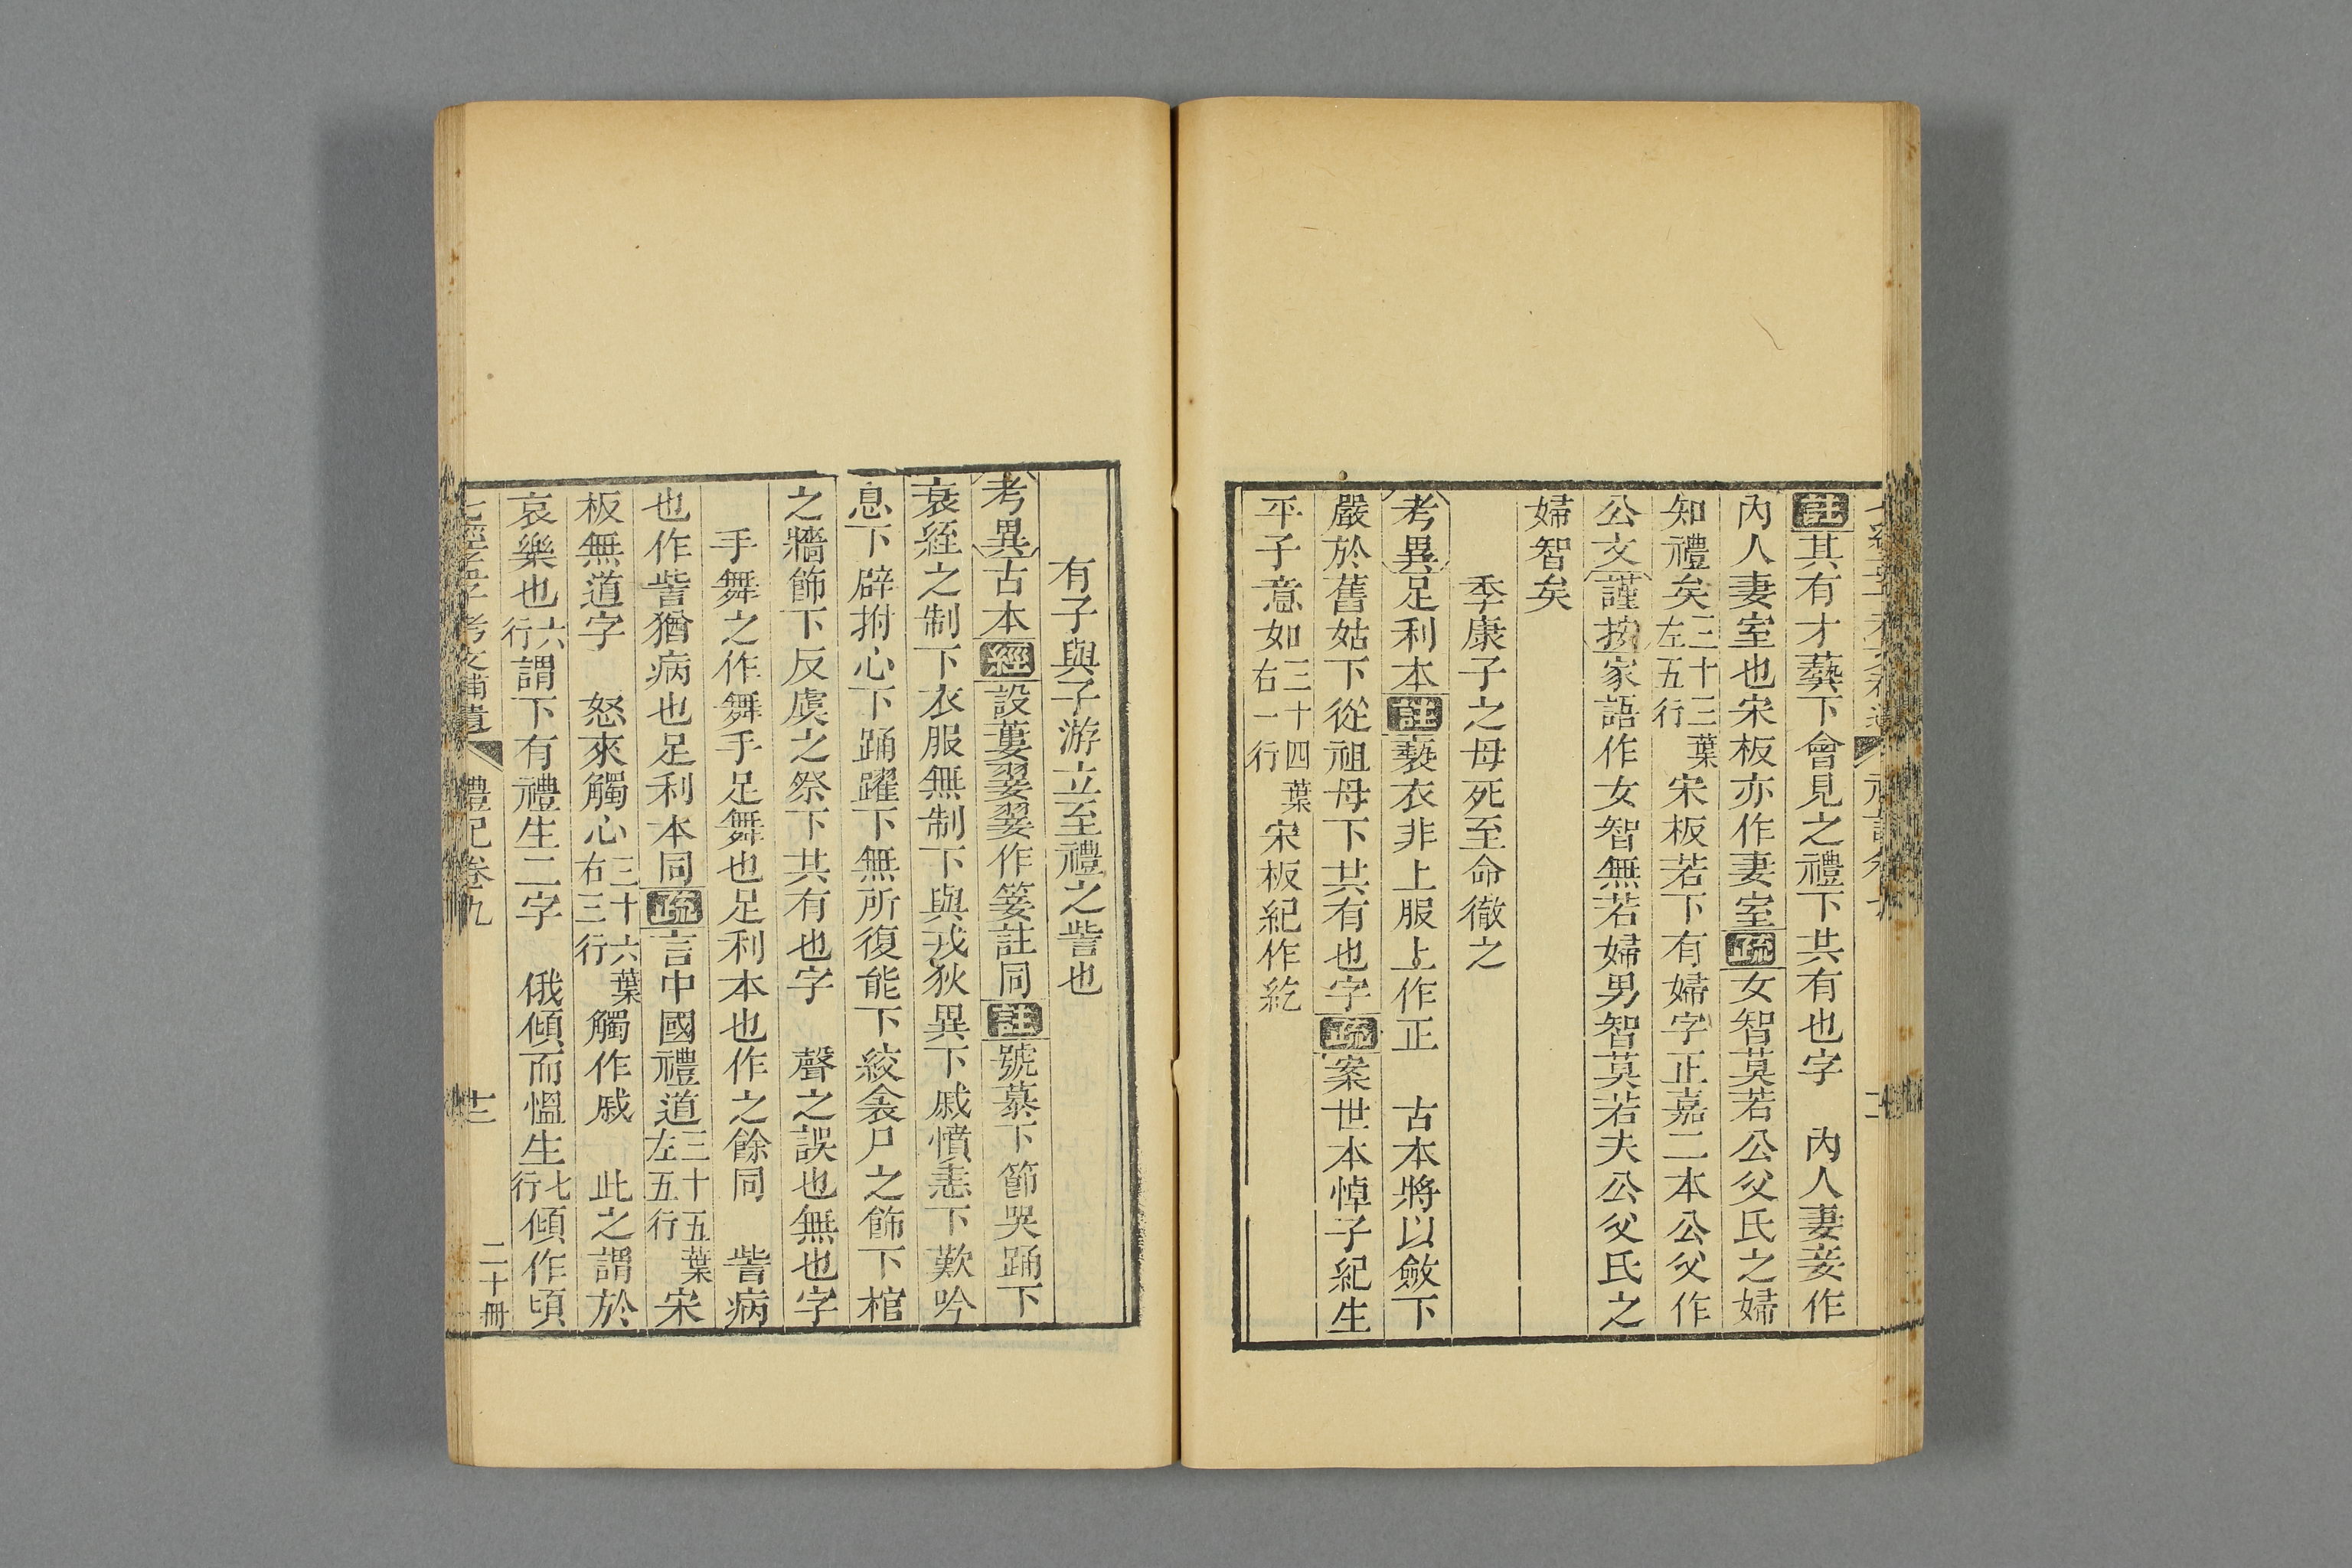 註其有才藝下會見之禮下共有也字　內人妻妾作
內人妻室也宋板亦作妻室疏女智莫若公父氏之婦
知禮矣三十三葉左五行宋板若下有婦字正嘉二本公父作
公文謹按家語作女智無若婦男智莫若夫公父氏之
婦智矣
季康子之母死至命徹之
考異足利本註褻衣非上服上作正　古本將以斂下
嚴於舊姑下從祖母下共有也字疏案世本悼子紀生
平子意如三十四葉右一行宋板紀作紇
有子與子游立至禮之訾也
考異古本經設蔞翣翣作䈉註同註號慕下節哭踊下
衰絰之制下衣服無制下與戎狄異下戚憤恚下歎吟
息下辟拊心下踊躍下無所復能下絞衾尸之飾下棺
之牆飾下反虞之祭下共有也字　聲之誤也無也字
手舞之作舞手足舞也足利本也作之餘同　訾病
也作訾猶病也足利本同疏言中國禮道三十五葉左五行宋
板無道字　怒來觸心三十六葉右三行觸作戚　此之謂於
哀樂也六行謂下有禮生二字　俄傾而慍生七行傾作頃
七經孟子考文補遺　禮記卷九　十二　二十冊